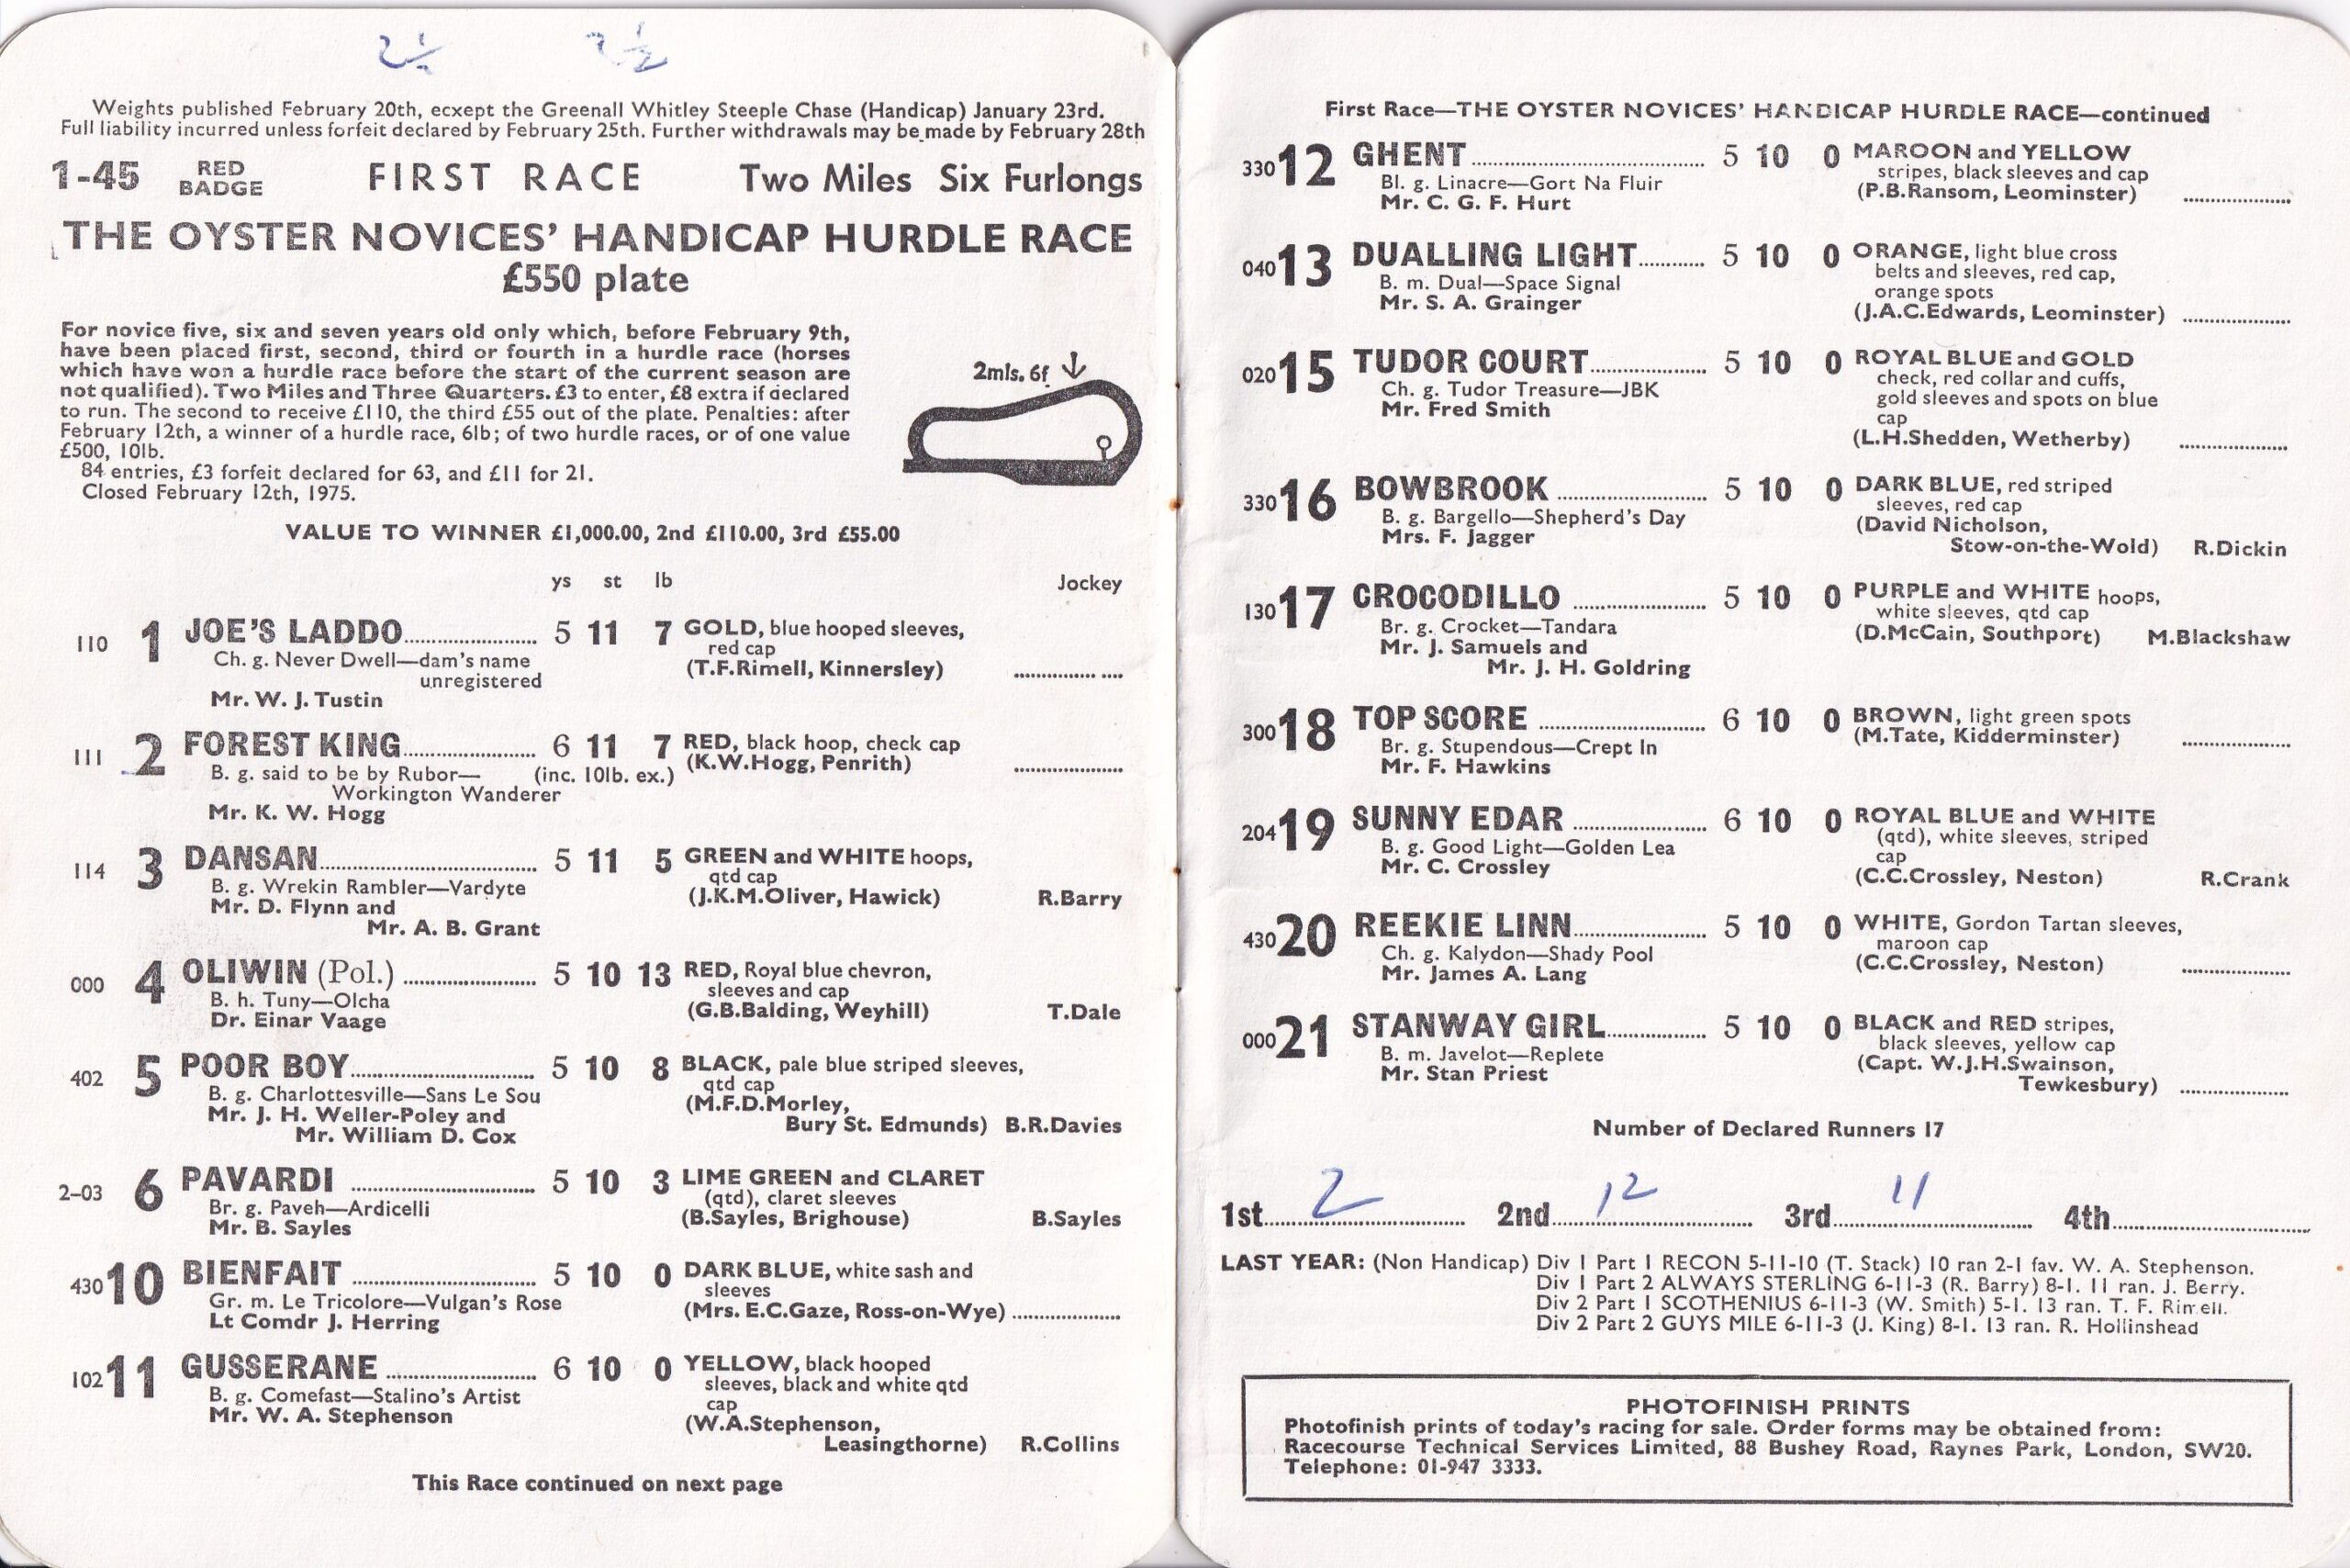 2½ 2½
Weights published February 20th, ecxept the Greenall Whitley Steeple Chase (Handicap) January 23rd.
Full liability incurred unless forfeit declared by February 25th. Further withdrawals may be made by February 28th
1-45 RED BADGE FIRST RACE Two Miles Six Furlongs
THE OYSTER NOVICES' HANDICAP HURDLE RACE
£550 plate
For novice five, six and seven years old only which, before February 9th,
have been placed first, second, third or fourth in a hurdle race (horses
which have won a hurdle race before the start of the current season are
not qualified). Two Miles and Three Quarters. £3 to enter, £8 extra if declared
to run. The second to receive £110, the third £55 out of the plate. Penalties: after
February 12th, a winner of a hurdle race, 6lb; of two hurdle races, or of one value
£500, 10lb.
84 entries, £3 forfeit declared for 63, and £11 for 21.
Closed February 12th, 1975.
2mls. 6f
VALUE TO WINNER £1,000.00, 2nd £110.00, 3rd £55.00
ys st lb Jockey
110 1 JOE'S LADDO 5 11 7 GOLD, blue hooped sleeves,
red cap
Ch. g. Never Dwell—dam's name
unregistered
(T.F.Rimell, Kinnersley)
Mr. W. J. Tustin
111 2 FOREST KING 6 11 7 RED, black hoop, check cap
B. g. said to be by Rubor— (inc. 10lb. ex.) (K.W.Hogg, Penrith)
Workington Wanderer
Mr. K. W. Hogg
114 3 DANSAN 5 11 5 GREEN and WHITE hoops,
qtd cap
B. g. Wrekin Rambler—Vardyte
(J.K.M.Oliver, Hawick) R.Barry
Mr. D. Flynn and
Mr. A. B. Grant
000 4 OLIWIN (Pol.) 5 10 13 RED, Royal blue chevron,
sleeves and cap
B. h. Tuny—Olcha
(G.B.Balding, Weyhill) T.Dale
Dr. Einar Vaage
402 5 POOR BOY 5 10 8 BLACK, pale blue striped sleeves,
qtd cap
B. g. Charlottesville—Sans Le Sou
(M.F.D.Morley,
Mr. J. H. Weller-Poley and
Bury St. Edmunds) B.R.Davies
Mr. William D. Cox
2-03 6 PAVARDI 5 10 3 LIME GREEN and CLARET
(qtd), claret sleeves
Br. g. Paveh—Ardicelli
(B.Sayles, Brighouse) B.Sayles
Mr. B. Sayles
430 10 BIENFAIT 5 10 0 DARK BLUE, white sash and
sleeves
Gr. m. Le Tricolore—Vulgan's Rose
(Mrs. E.C.Gaze, Ross-on-Wye)
Lt Comdr J. Herring
102 11 GUSSERANE 6 10 0 YELLOW, black hooped
sleeves, black and white qtd
cap
B. g. Comefast—Stalino's Artist
Mr. W. A. Stephenson
(W.A.Stephenson,
Leasingthorne) R.Collins
This Race continued on next page
First Race—THE OYSTER NOVICES' HANDICAP HURDLE RACE—continued
330 12 GHENT 5 10 0 MAROON and YELLOW
stripes, black sleeves and cap
Bl. g. Linacre—Gort Na Fluir
(P.B.Ransom, Leominster)
Mr. C. G. F. Hurt
040 13 DUALLING LIGHT 5 10 0 ORANGE, light blue cross
belts and sleeves, red cap,
orange spots
B. m. Dual—Space Signal
Mr. S. A. Grainger
(J.A.C.Edwards, Leominster)
020 15 TUDOR COURT 5 10 0 ROYAL BLUE and GOLD
check, red collar and cuffs,
gold sleeves and spots on blue
cap
Ch. g. Tudor Treasure—JBK
Mr. Fred Smith
(L.H.Shedden, Wetherby)
330 16 BOWBROOK 5 10 0 DARK BLUE, red striped
sleeves, red cap
B. g. Bargello—Shepherd's Day
(David Nicholson,
Mrs. F. Jagger
Stow-on-the-Wold) R.Dickin
130 17 CROCODILLO 5 10 0 PURPLE and WHITE hoops,
white sleeves, qtd cap
Br. g. Crocket—Tandara
(D.McCain, Southport) M.Blackshaw
Mr. J. Samuels and
Mr. J. H. Goldring
300 18 TOP SCORE 6 10 0 BROWN, light green spots
Br. g. Stupendous—Crept In
(M.Tate, Kidderminster)
Mr. F. Hawkins
204 19 SUNNY EDAR 6 10 0 ROYAL BLUE and WHITE
(qtd), white sleeves, striped
cap
B. g. Good Light—Golden Lea
Mr. C. Crossley
(C.C.Crossley, Neston) R.Crank
430 20 REEKIE LINN 5 10 0 WHITE, Gordon Tartan sleeves,
maroon cap
Ch. g. Kalydon—Shady Pool
(C.C.Crossley, Neston)
Mr. James A. Lang
000 21 STANWAY GIRL 5 10 0 BLACK and RED stripes,
black sleeves, yellow cap
B. m. Javelot—Replete
(Capt. W.J.H.Swainson,
Mr. Stan Priest
Tewkesbury)
Number of Declared Runners 17
1st 2 2nd 12 3rd 11 4th
LAST YEAR: (Non Handicap) Div 1 Part 1 RECON 5-11-10 (T. Stack) 10 ran 2-1 fav. W. A. Stephenson.
Div 1 Part 2 ALWAYS STERLING 6-11-3 (R. Barry) 8-1. 11 ran. J. Berry.
Div 2 Part 1 SCOTHENIUS 6-11-3 (W. Smith) 5-1. 13 ran. T. F. Rimell.
Div 2 Part 2 GUYS MILE 6-11-3 (J. King) 8-1. 13 ran. R. Hollinshead
PHOTOFINISH PRINTS
Photofinish prints of today's racing for sale. Order forms may be obtained from:
Racecourse Technical Services Limited, 88 Bushey Road, Raynes Park, London, SW20.
Telephone: 01-947 3333.